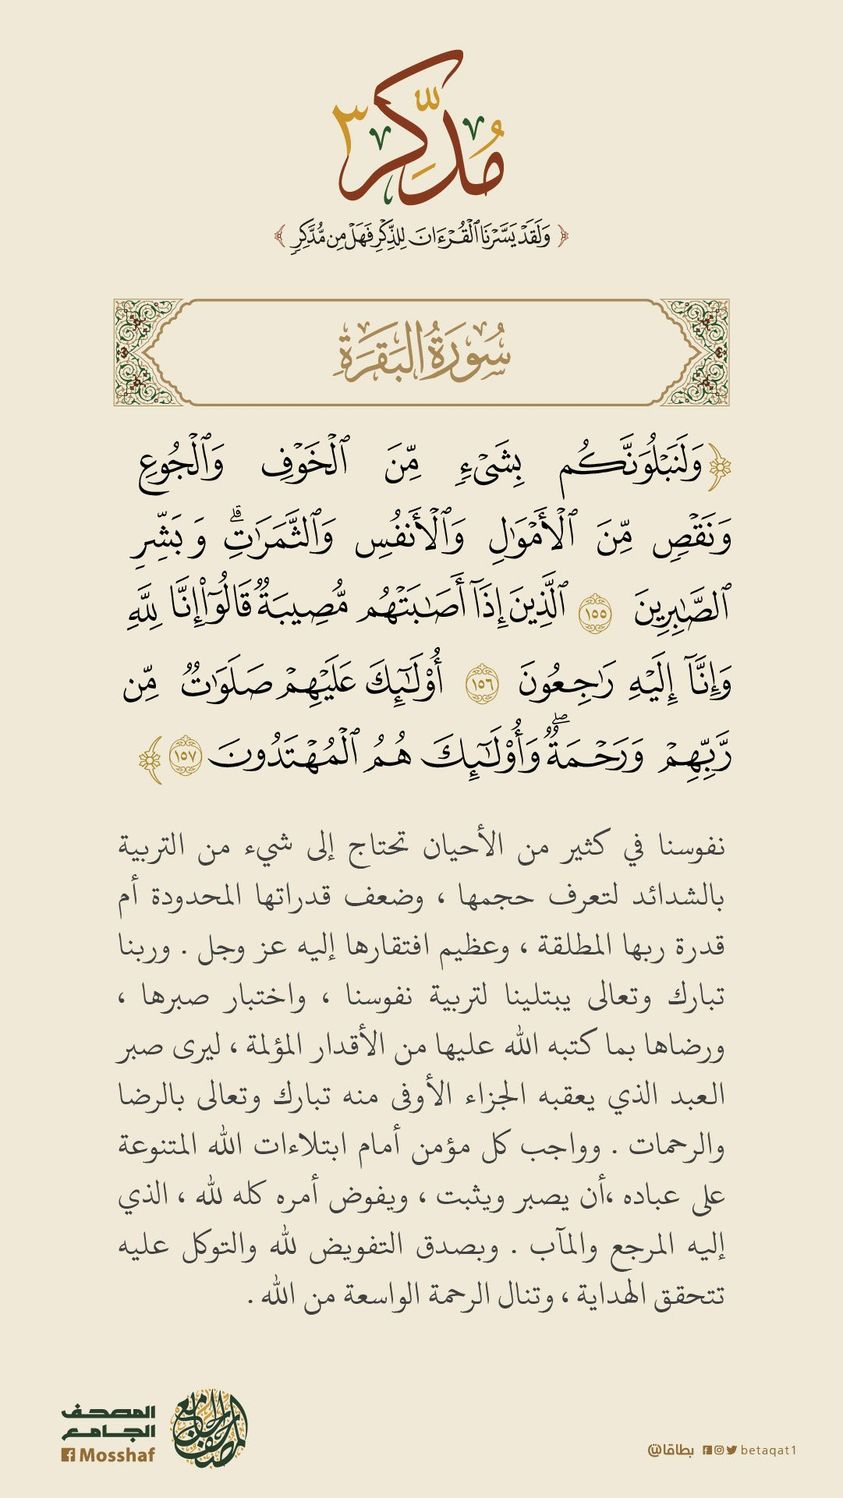 مُدَّكِر ٣
﴿ وَلَقَدْ يَسَّرْنَا ٱلْقُرْءَانَ لِلذِّكْرِ فَهَلْ مِن مُّدَّكِرٍ ﴾
سُورَةُ البَقَرَةِ
﴿وَلَنَبْلُوَنَّكُم بِشَىْءٍ مِّنَ ٱلْخَوْفِ وَٱلْجُوعِ
وَنَقْصٍ مِّنَ ٱلْأَمْوَٰلِ وَٱلْأَنفُسِ وَٱلثَّمَرَٰتِ ۗ وَبَشِّرِ
ٱلصَّٰبِرِينَ ١٥٥ ٱلَّذِينَ إِذَآ أَصَٰبَتْهُم مُّصِيبَةٌ قَالُوٓا۟ إِنَّا لِلَّهِ
وَإِنَّآ إِلَيْهِ رَٰجِعُونَ ١٥٦ أُو۟لَٰٓئِكَ عَلَيْهِمْ صَلَوَٰتٌ مِّن
رَّبِّهِمْ وَرَحْمَةٌ ۖ وَأُو۟لَٰٓئِكَ هُمُ ٱلْمُهْتَدُونَ ١٥٧﴾
نفوسنا في كثير من الأحيان تحتاج إلى شيء من التربية
بالشدائد لتعرف حجمها ، وضعف قدراتها المحدودة أم
قدرة ربها المطلقة ، وعظيم افتقارها إليه عز وجل . وربنا
تبارك وتعالى يبتلينا لتربية نفوسنا ، واختبار صبرها ،
ورضاها بما كتبه الله عليها من الأقدار المؤلمة ، ليرى صبر
العبد الذي يعقبه الجزاء الأوفى منه تبارك وتعالى بالرضا
والرحمات . وواجب كل مؤمن أمام ابتلاءات الله المتنوعة
على عباده ،أن يصبر ويثبت ، ويفوض أمره كله لله ، الذي
إليه المرجع والمآب . وبصدق التفويض لله والتوكل عليه
تتحقق الهداية ، وتنال الرحمة الواسعة من الله .
المصحف
الجامع
Mosshaf
المصحف الجامع
بطاقا@ betaqat1